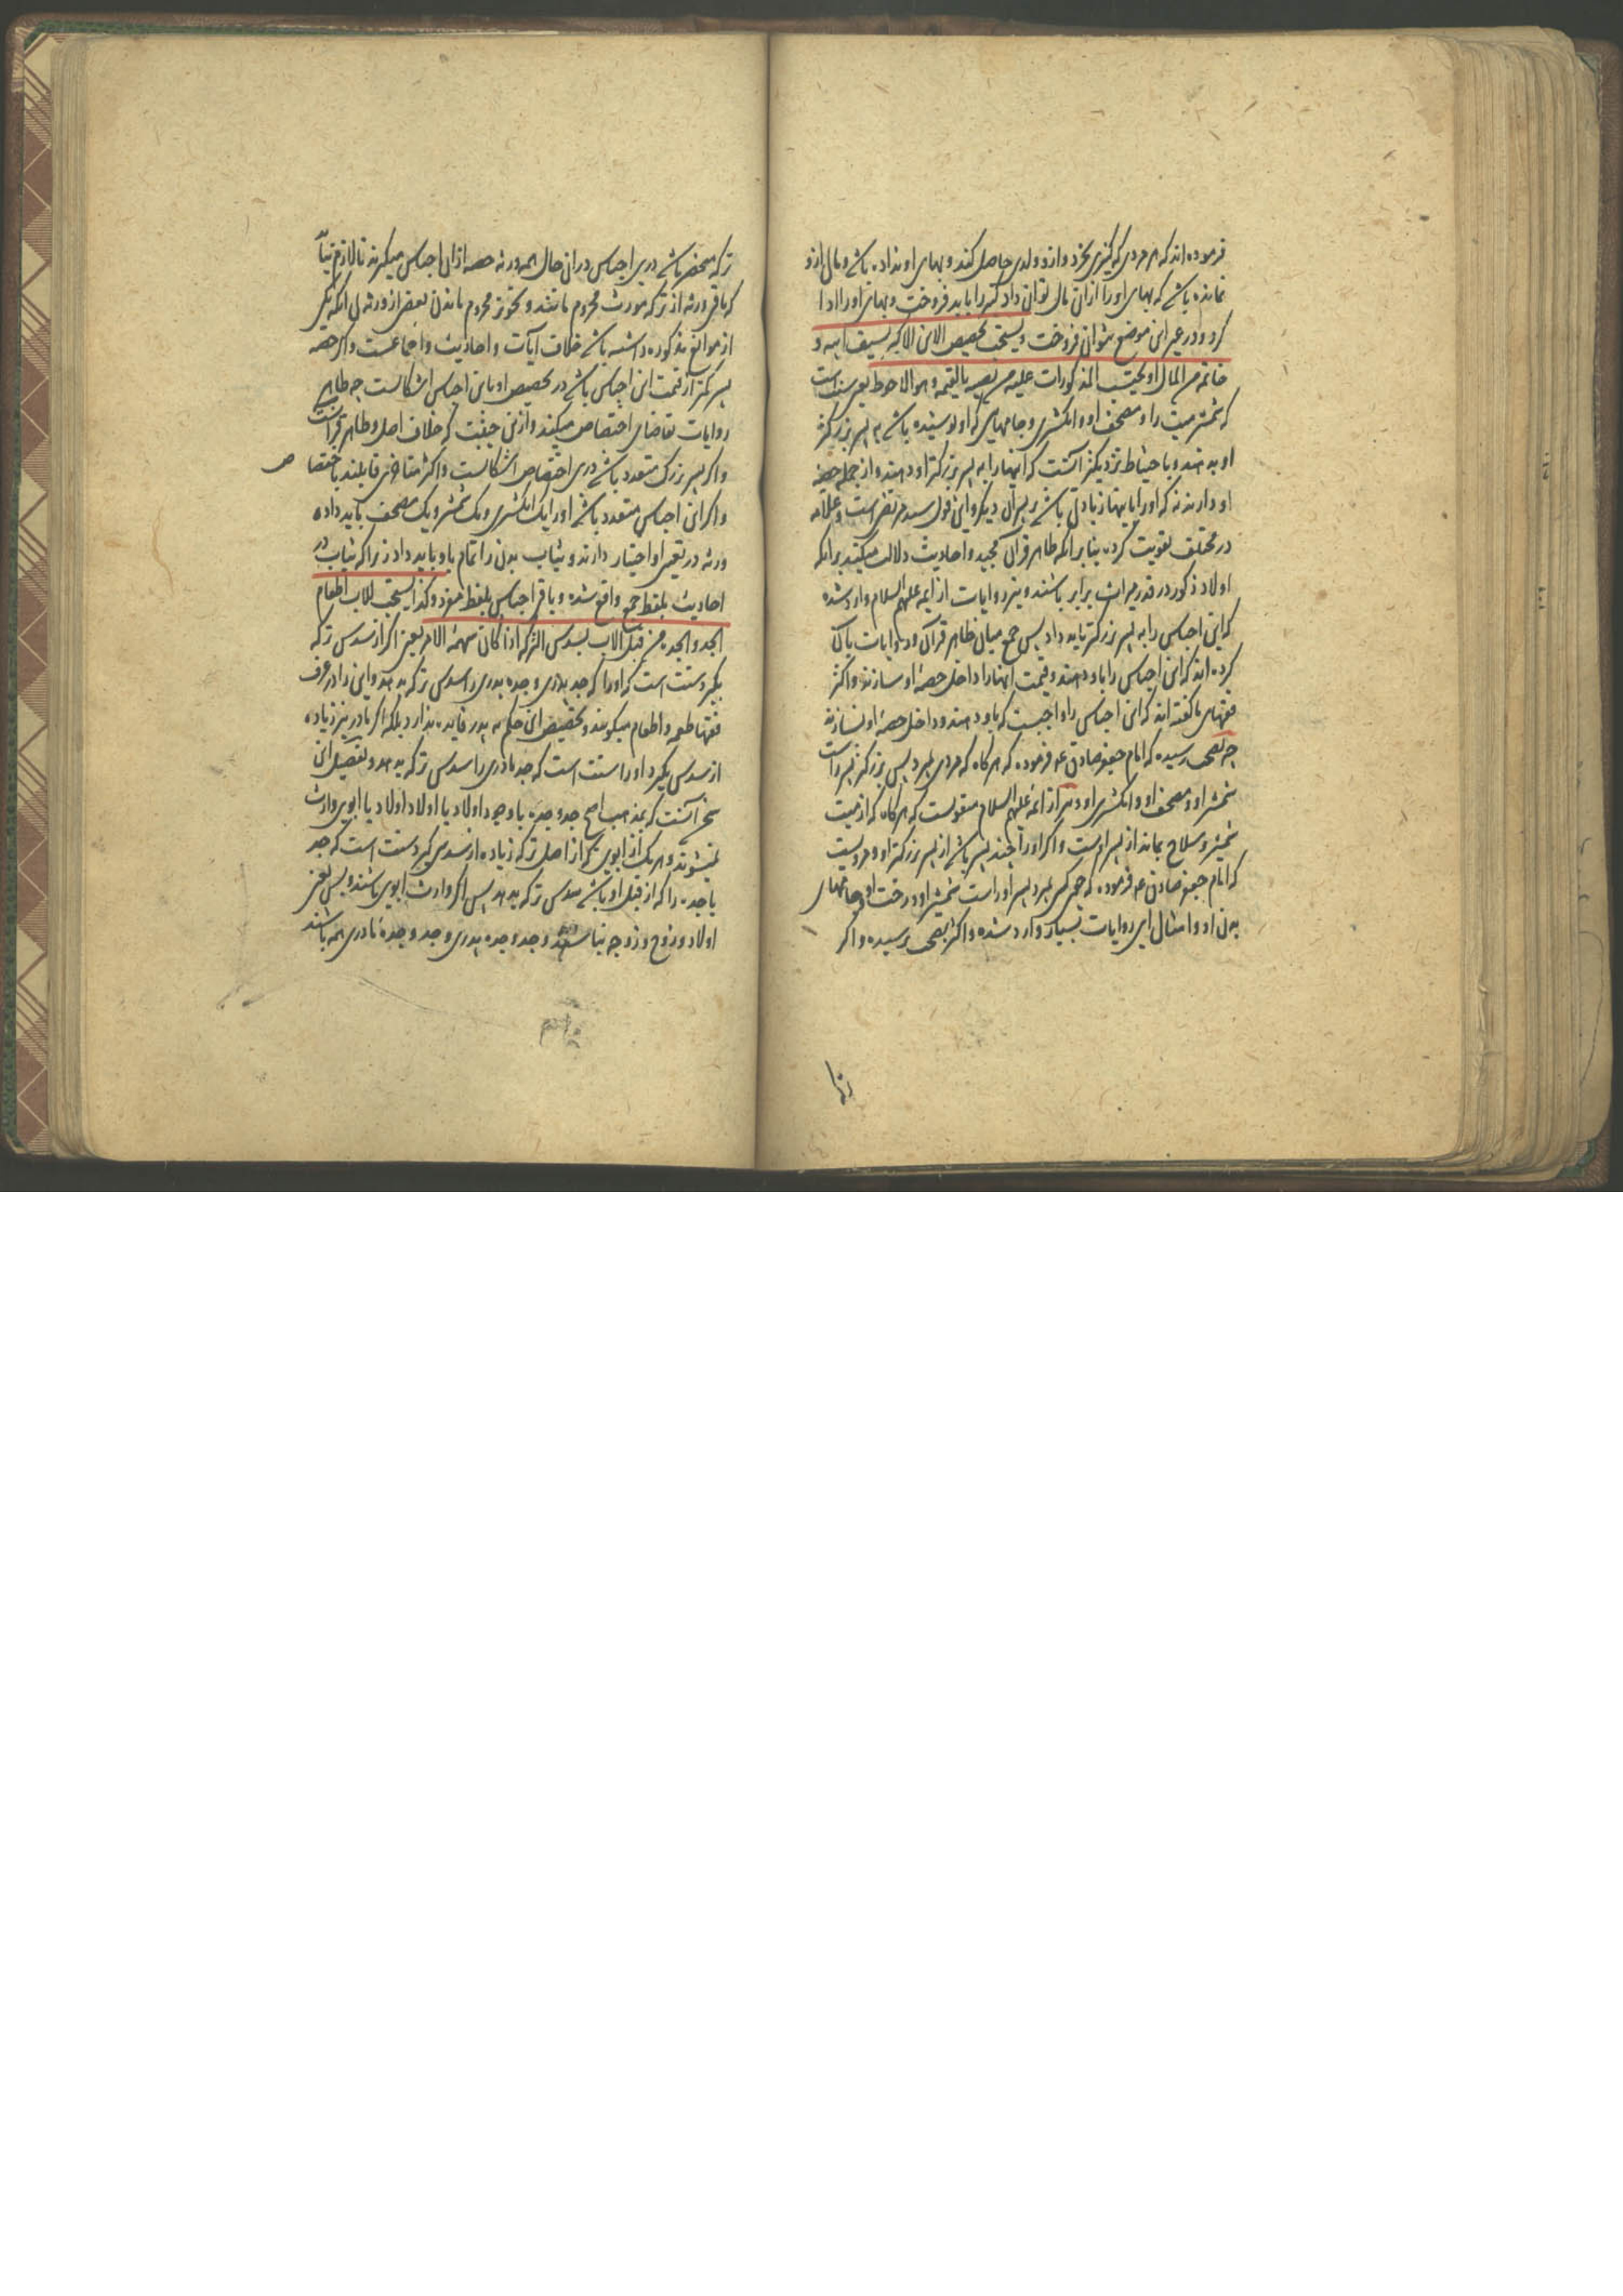 فرموده‌اند که هر مردی که کنیزی بخرد و ازو ولدی حاصل کند و بهای او نداده باشد و مال ازو
نمانده باشد که بهای او را ازان مال توان داد کنیز را باید فروخت و بهای او را ادا
کرد و در غیر این موضع نتوان فروخت و یستحب تخصیص الابن الاکبر بسیف ابیه و
خاتمه من المال او یحتسب المذکورات علیه من نصیبه بالقیمه و هو الاحوط یعنی سنت است
که شمشیر میت را و مصحف او و انکشتری و جامهای که او پوشیده باشد به پسر بزرکتر
او بدهند و باحتیاط نزدیکتر آنست که اینها را به پسر بزرکتر او دهند و از جمله حصه
او دارند نه که او را باینها زیادتی باشد بر پسران دیکر و این قول سید مرتضی است و علامه
در مختلف تقویت کرده بنابر آنکه ظاهر قرآن مجید و احادیث دلالت میکند برانکه
اولاد ذکور در قدر میراث برابر باشند و نیز روایات از ایمه علیهم السلام وارد شده
که این اجناس را به پسر بزرکتر باید داد پس جمع میان ظاهر قرآن و روایات باین
کرده‌اند که این اجناس را باو دهند و قیمت اینها را داخل حصهٔ او سازند و اکثر
فقهای ما کفته‌اند که این اجناس را واجبست که باو دهند و داخل حصهٔ او نسازند
چه بصحت رسیده که امام جعفر صادق ع فرموده که هر کاه که مردی بمیرد پس بزرکتر پسر راست
شمشیر او و مصحف او و انکشتری او و نیز از ائمه علیهم السلام منقولست که هر کاه که از میت
شمشیر و سلاح بماند از پسر اوست و اکر او را چند پسر باشد از پسر بزرکتر او و مرویست
که امام جعفر صادق ع فرموده که چون کسی بمیرد پسر او راست شمشیر او و رخت او و جامهای
بدن او و امثال این روایات بسیار وارد شده و اکثر بصحت رسیده و اکر
ترکه منحصر باشد درین اجناس دران حال همه ورثه حصه ازان اجناس میکیرند تا لازم نیاید
که باقی ورثه از ترکه مورث محروم باشند و تجویز محروم ماندن بعضی از ورثه بی آنکه یکی
از موانع مذکوره داشته باشد خلاف آیات و احادیث و اجماعست و اکر حصه
پسر کمتر از قیمت این اجناس باشد در تخصیص او باین اجناس اشکالست چه ظاهر
روایات تقاضای اختصاص میکند و ازین حیثیت که خلاف اصل و ظاهر قرآنست
و اکر پسر بزرک متعدد باشد درین اختصاص اشکالست و اکثر متاخرین قایلند باختصا
ص
و اکر این اجناس متعدد باشد او را یک انکشتری و یک شمشیر و یک مصحف باید داد و
ورثه در تعیین او اختیار دارند و ثیاب بدن را تمام باو باید داد زیرا که ثیاب در
احادیث بلفظ جمع واقع شده و باقی اجناس بلفظ مفرد و کذا یستحب للاب اطعام
الجد و الجدة من قبل الاب بسدس الترکه اذا کان سهمه الاکثر یعنی اکر از سدس ترکه
بکیرد سنت است که او را که جد پدری و جده پدری را سدس ترکه بدهد و این را در عرف
فقها طعمه و اطعام میکویند و تخصیص این حکم به پدر فایده ندارد بلکه اکر مادر نیز زیاده
از سدس بکیرد او را سنت است که جد مادری را سدس ترکه بدهد و تفصیل این
سخن آنست که بمذهب اصح جد و جده با وجود اولاد یا اولاد اولاد یا ابوین وارث
نمیشوند و هر یک از ابوین که از اصل ترکه زیاده از سدس کیرد سنت است که جد
یا جده را که از قبل او باشد سدس ترکه بدهد پس اکر وارث ابوین باشند و بس یعنی
اولاد و زوج و زوجه نباشند و جد و جده پدری و جد و جدهٔ مادری همه باشند